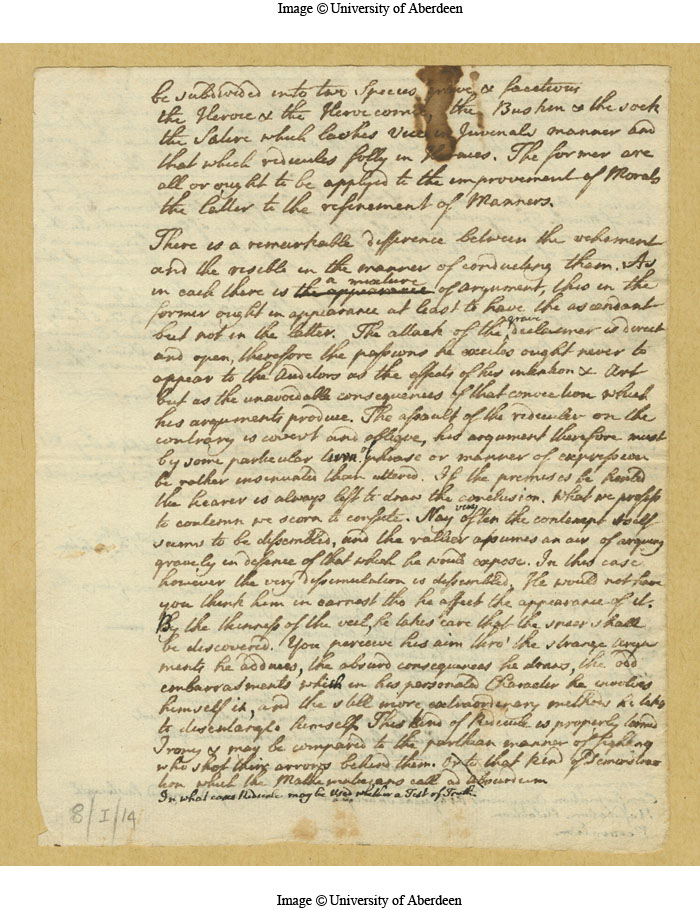 Image © University of Aberdeen
be subdivided into two Species grave & facetious
the Heroic & the Heroecomic, the Buskin & the sock
the Satire which lashes vice in Juvenals manner and
that which ridicules folly in Horaces. The former are
all or ought to be applyed to the improvement of Morals
the latter to the refinement of Manners.
There is a remarkable difference between the vehement
and the risible in the manner of conducting them. As
in each there is the appearance a mixture of argument, this in the
former ought in appearance at least to have the ascendant
but not in the latter. The attack of the grave declaimer is direct
and open, therefore the passions he excites ought never to
appear to the Auditors as the effects of his intention & Art
but as the unavoidable consequences of that conviction which
his arguments produce. The assault of the ridiculer on the
contrary is covert and oblique, his argument therefore must
by some particular turn of phrase or manner of expression
be rather insinuated than uttered. If the premises be hinted
the hearer is always left to draw the conclusion. What we profess
to contemn we scorn to confute. Nay very often the contempt itself
seems to be dissembled, and the rallier assumes an air of arguing
gravely in defence of that which he would expose. In this case
however the very dissimulation is dissembled, He would not have
you think him in earnest tho he affect the appearance of it.
By the thinness of the veil, he takes care that the sneer shall
be discovered. You perceive his aim thro' the strange argu
ments he adduces, the absurd consequences he draws, the odd
embarrasments which in his personated Character he involves
himself in, and the still more extraordinary methods he takes
to disentangle himself. This kind of Ridicule is properly termed
Irony & may be compared to the parthian manner of fighting
who shot their arrows behind them. Or to that kind of Demonstra
tion which the Mathematicians call ad absurdum
In what cases Ridicule may be used whether a Test of Truth
8/I/14
Image © University of Aberdeen